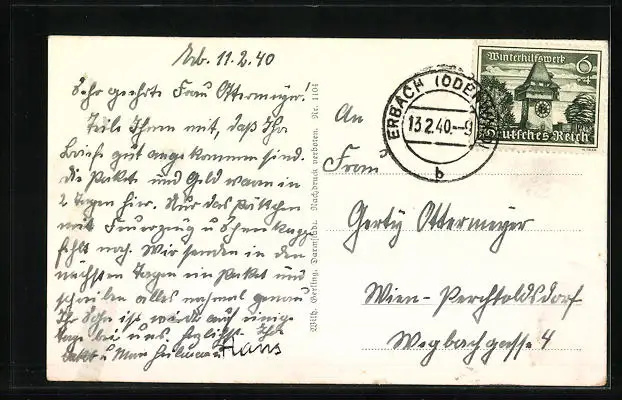 Erb. 11.2.40
Sehr geehrte Frau Ottermeyer!
Teile Ihnen mit, daß Ihr
Briefe gut angekommen sind.
die Pakete und Geld waren in
2 Tagen hier. Nur das Päckchen
mit Feuerzeug u
fehlt noch. Wir senden in den
nächsten Tagen ein Paket und
schreiben alles nochmal genau
Ihr Sohn ist wieder auf einige
Tage bei uns. herzlichst Ihr
Hans
Wilh. Gerling, Darmstadt. Nachdruck verboten. Nr. 1104
An
Frau
Gerty Ottermeyer
Wien-Perchtoldsdorf
Wegbachgasse 4
ERBACH (ODENWALD)
13.2.40.-9
b
Winterhilfswerk
6+4
Deutsches Reich